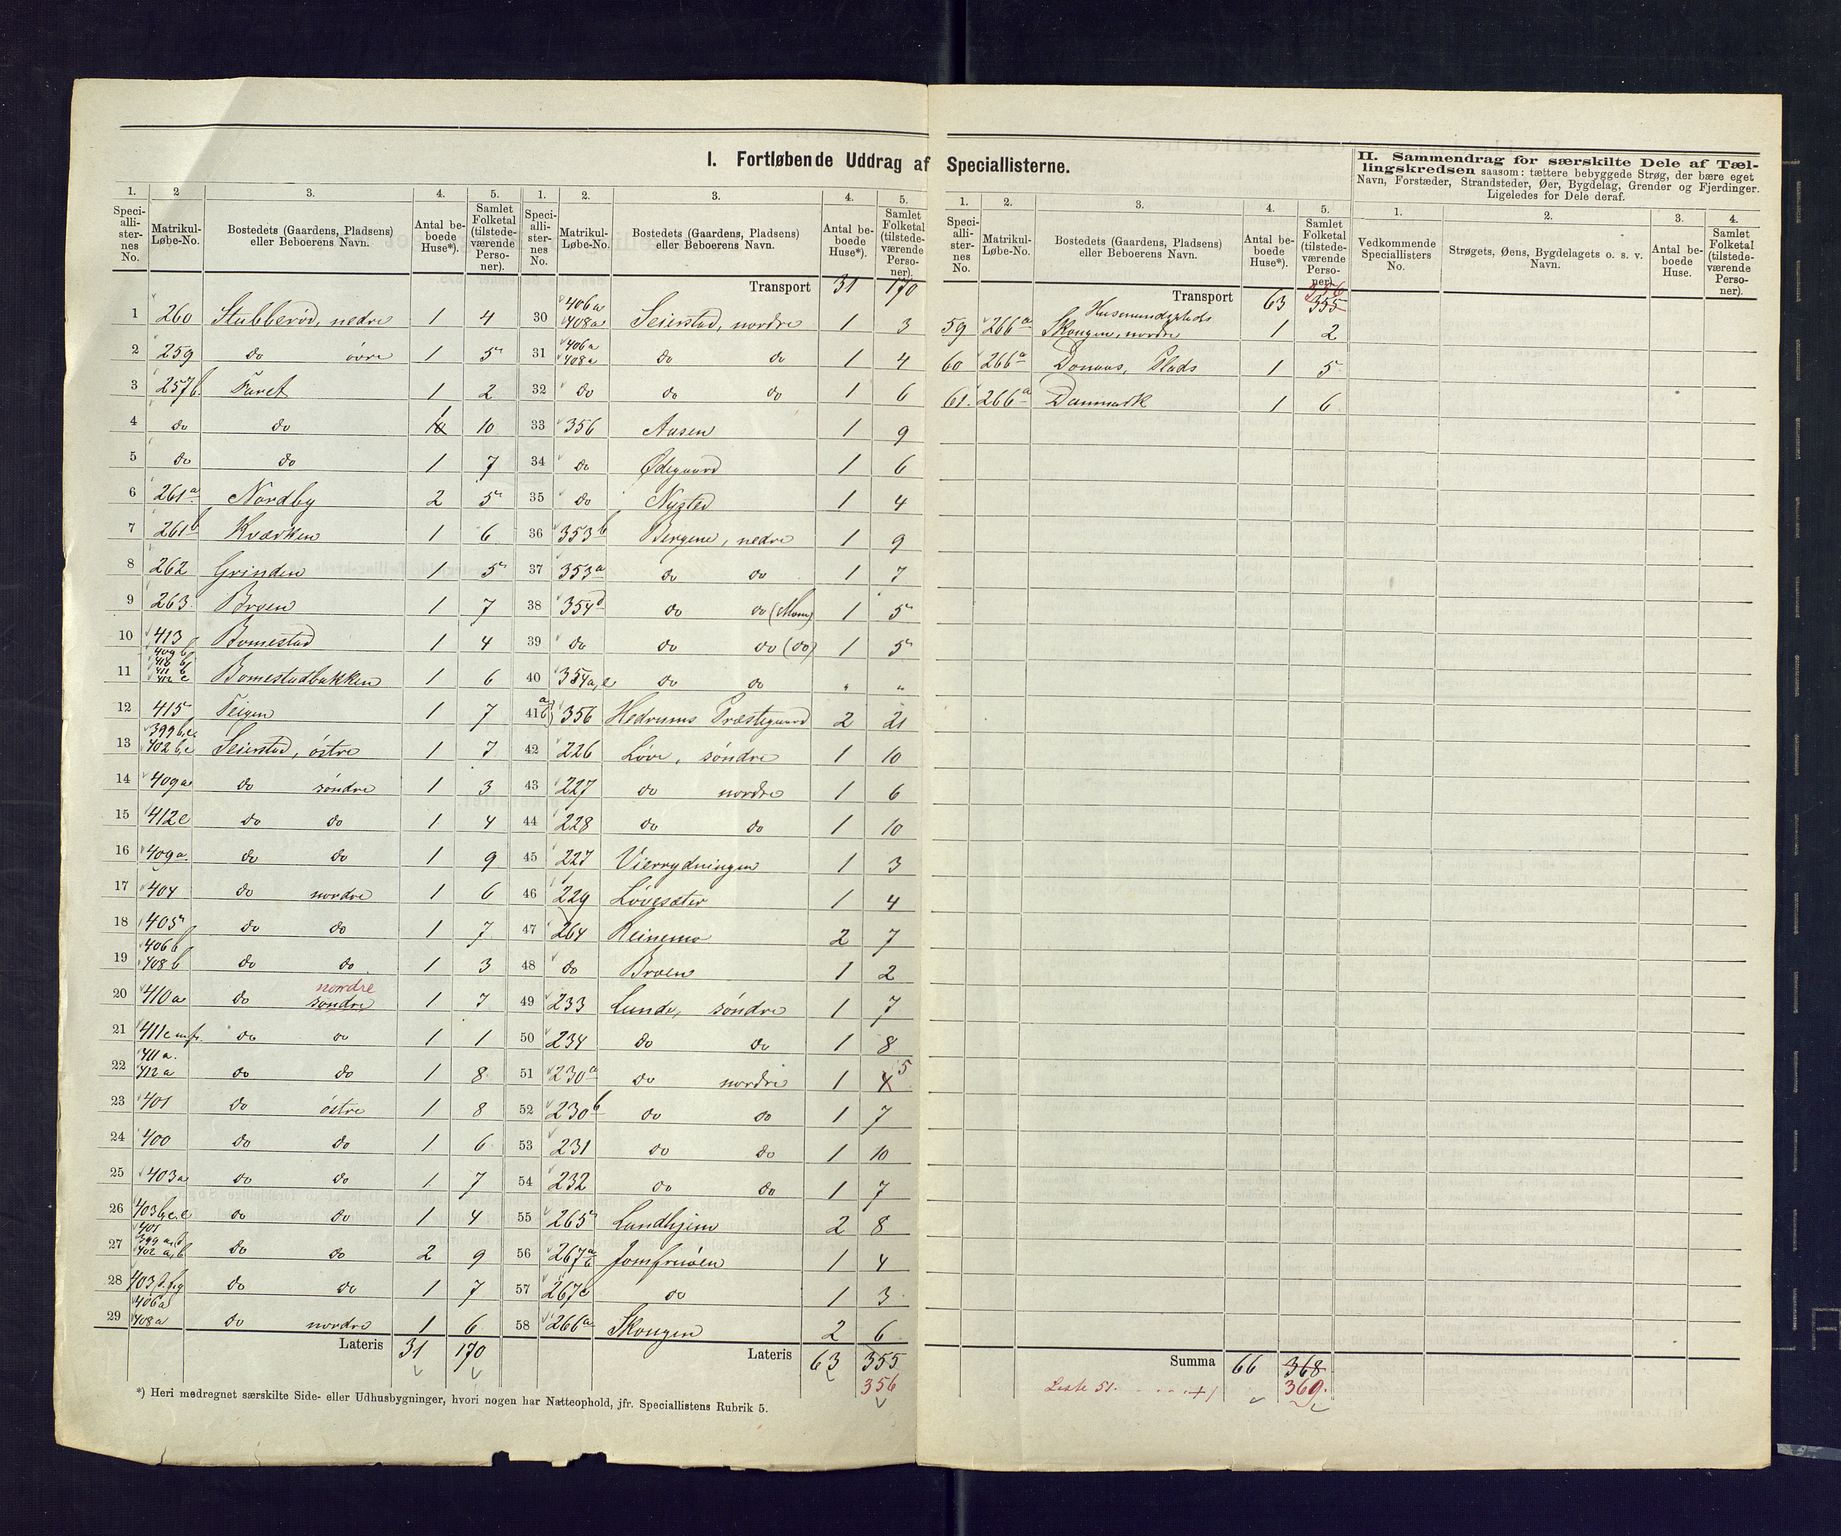 I. Fortløbende Uddrag af Speciallisterne.
II. Sammendrag for særskilte Dele af Tæl-
lingskredsen saasom: tættere bebyggede Strøg, der bære eget
Navn, Forstæder, Strandsteder, Øer, Bygdelag, Grender og Fjerdinger.
Ligeledes for Dele deraf.
1. 2 3. 4. 5.
Speci-alli-ster-nes No. Matrikul-Løbe-No. Bostedets (Gaardens, Pladsens) eller Beboerens Navn. Antal be-boede Huse*). Samlet Folketal (tilstede-værende Perso-ner).
1 260 Stubberød, nedre 1 4
2 259 do øvre 1 5
3 257b. Faret 1 2
4 do do 1 10
5 do do 1 7
6 261a Nordby 2 5
7 261b Kværken 1 6
8 262 Grinden 1 5
9 263 Broen 1 7
10 413 Bomestad 1 4
11 409b 410b 411b 412c Bomestadbakken 1 6
12 415 Teigen 1 7
13 399b,c 402b,c Seierstad, østre 1 7
14 409a do søndre 1 3
15 412c do do 1 4
16 409a do do 1 9
17 404 do nordre 1 6
18 405 do do 1 7
19 406b 408b do do 1 3
20 410a do søndre nordre 1 7
21 411c do do 1 1
22 411a. 412a do do 1 8
23 401 do østre 1 8
24 400 do do 1 6
25 403a do do 1 7
26 403b,c.e do do 1 4
27 402 a,b do do 2 9
28 do do 1 7
29 406a 408a do nordre 1 6
Lateris 31 170
1. 2. 3. 4. 5.
Speci-alli-ster-nes No. Matrikul-Løbe-No. Bostedets (Gaardens, Pladsens) eller Beboerens Navn. Antal be-boede Huse*). Samlet Folketal (tilstede-værende Perso-ner).
Transport 31 170
30 406a 408a Seierstad, nordre 1 3
31 406a 408a do do 1 4
32 do do do 1 6
33 356 Aasen 1 9
34 do Ødegaard 1 6
35 do Nysted 1 4
36 353b Bergene, nedre 1 9
37 353a do do 1 7
38 354d do do (Mom) 1 5
39 do do do (do) 1 5
40 354a,c do do " "
41 a b 356 Hedrums Præstegaard 2 21
42 226 Løve, søndre 1 10
43 227 do nordre 1 6
44 228 do do 1 10
45 227 Vierrydningen 1 3
46 229 Løvesæter 1 4
47 264 Reinemo 2 7
48 do Broen 1 2
49 233 Lunde, søndre 1 7
50 234 do do 1 8
51 230a do nordre 1 4 5
52 230b do do 1 7
53 231 do do 1 10
54 232 do do 1 7
55 265 Lundhjem 2 8
56 267a b Jomfruøen 1 4
57 267c do 1 3
58 266a Skougen 2 6
Lateris 63 355
356
*) Heri medregnet særskilte Side- eller Udhusbygninger, hvori nogen har Natteophold, jfr. Speciallistens Rubrik 5.
1. 2. 3. 4. 5.
Speci-alli-ster-nes No. Matrikul-Løbe-No. Bostedets (Gaardens, Pladsens) eller Beboerens Navn. Antal be-boede Huse*). Samlet Folketal (tilstede-værende Perso-ner).
Transport 63 355 356
59 266a Husmandsplads Skougen, nordre 1 2
60 266a Donaas, Plads 1 5
61. 266a Danmark 1 6
Summa 66 368
Liste 51. +1 369.
1. 2. 3. 4.
Vedkommende Speciallisters No. Strøgets, Øens, Bygdelagets o. s. v. Navn. Antal be-boede Huse. Samlet Folketal (tilstede-værende Perso-ner).